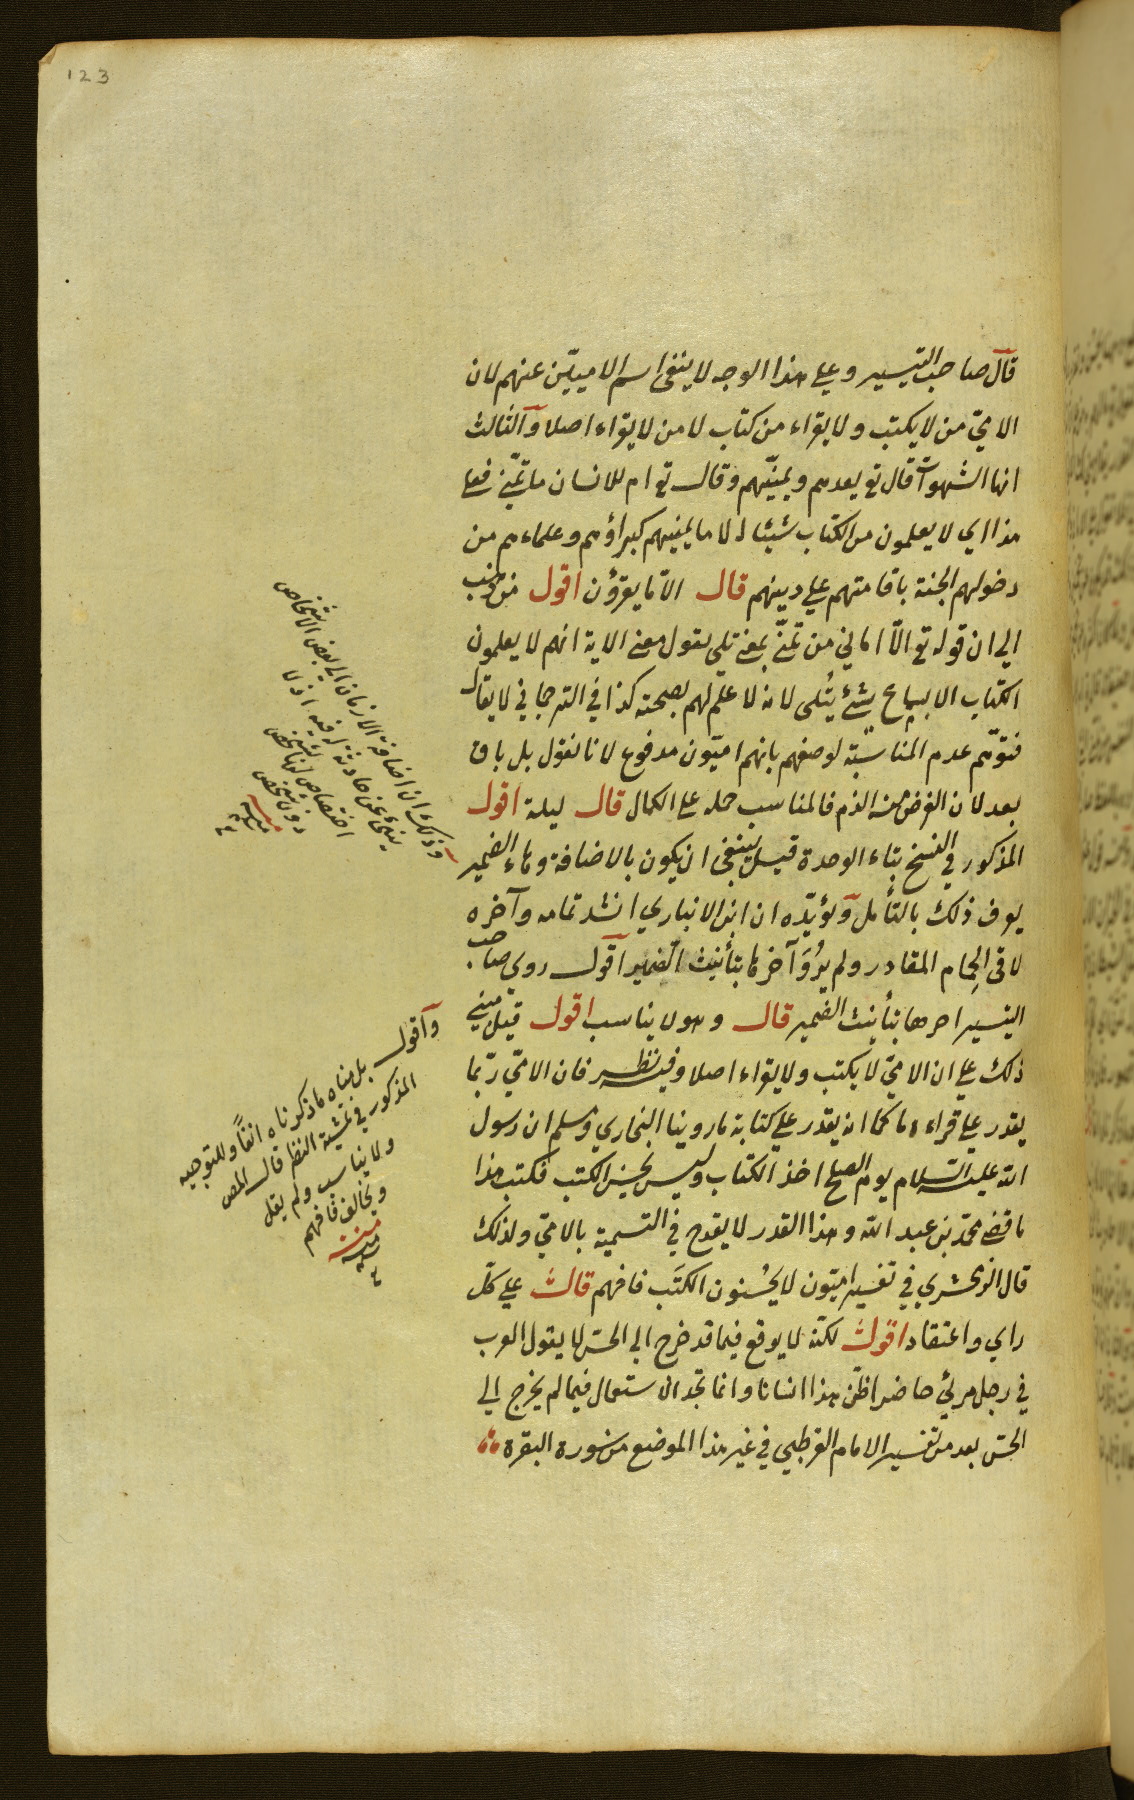 123
قال صاحب التيسير وعلى هذا الوجه لا ينفى اسم الاميّين عنهم لان
الامّي من لا يكتب ولا يقراء من كتاب لا من لا يقراء اصلا والثالث
انها الشهوات قال تع يعدهم ويمنّيهم وقال تع ام للانسان ما تمنّى فعلى
هذا اي لا يعلمون من الكتاب شيئا الا ما يمنيهم كبراؤهم وعلماءهم من
دخولهم الجنة باقامتهم على دينهم قال الّا ما يقرؤن اقول من ذهب
الى ان قوله تع الّا اماني من تمنّى بمعنى تلى يقول معنى الاية انهم لا يعلمون
الكتاب الا بسماع شئ يُتلى لانه لا علم لهم بصحته كذا في الترجماني لا يقال
فتوهّم عدم المناسبة لوصفهم بانهم اميّون مدفوع لانا نقول بل باق
بعد لان الغرض منه الذم فالمناسب حمله على الكمال قال ليلة اقول
المذكور في النسخ بتاء الوحدة قيل ينبغى ان يكون بالاضافة وهاء الضمير
يعرف ذلك بالتأمل ويؤيّده ان ابن الانباري انشد تمامه وآخره
لاقى الحِمام المقادر ولم يُرْوَ آخرها بتأنيث الضمير اقول روى صاحب
التيسير اخرها بتأنيث الضمير قال وهو لا يناسب اقول قيل مبنى
ذلك على ان الامّي لا يكتب ولا يقراء اصلا وفيه نظر فان الامّي ربّما
يقدر على قراءة ما كما انه يقدر على كتابة ما روينا البخاري ومسلم ان رسول
الله عليه السلام يوم الصلح اخذ الكتاب وليس يحسن الكتب فكتب هذا
ما قضى محمّد بن عبد الله وهذا القدر لا يقدح في التسمية بالامّي ولذلك
قال الزمخشري في تفسير اميّون لا يُحسنون الكَتَب فافهم قال على كلّ
راي واعتقاد اقول لكنّه لا يوقع فيما قد خرج الى الحسّ لا يقول العرب
في رجل مرئي حاضر اظنّ هذا انسانا وانما تجد الاستعمال فيما لم يخرج الى
الحسّ بعد من تفسير الامام القرطبي في غير هذا الموضع من سورة البقرة
وذلك ان اضافة الازمان الى بعض الاشخاص
ينبئ عن حادثة فيه اذ لا
اختصاص لها بشخص
دون شخص
منه
واقول بل بناه ما ذكرناه انفًا وللتوجيه
المذكور في تمشية النظر قال المص
ولا يناسب ولم يقل
ويخالف فافهم
منه